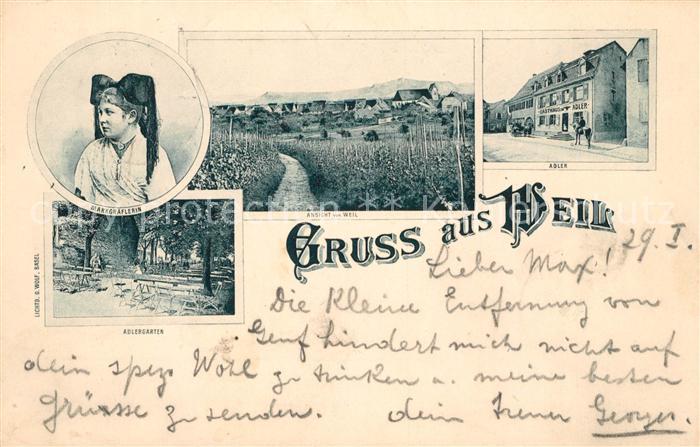 GASTHAUS ADLER
MARKGRÄFLERIN
ANSICHT VON WEIL
ADLER
ADLERGARTEN
LICHTD. G. WOLF, BASEL
GRUSS aus WEIL
29. I.
Lieber Max!
Die kleine Entfernung von
Genf hindert mich nicht auf
dein spez. Wohl zu trinken u. meine besten
Grüsse zu senden. dein treuer Georges